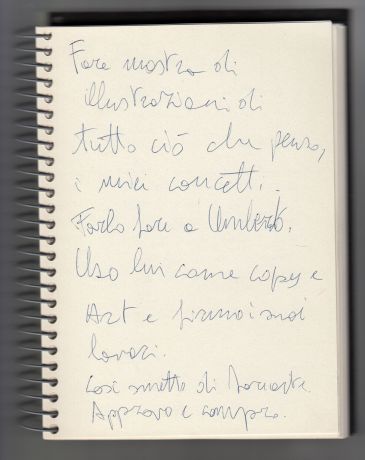 Fare mostra di
illustrazioni di
tutto ciò che penso,
i miei concetti.
Farlo fare a Umberto.
Uso lui come copy e
Art e firmo i suoi
lavori.
Così smetto di
Approvo e compro.